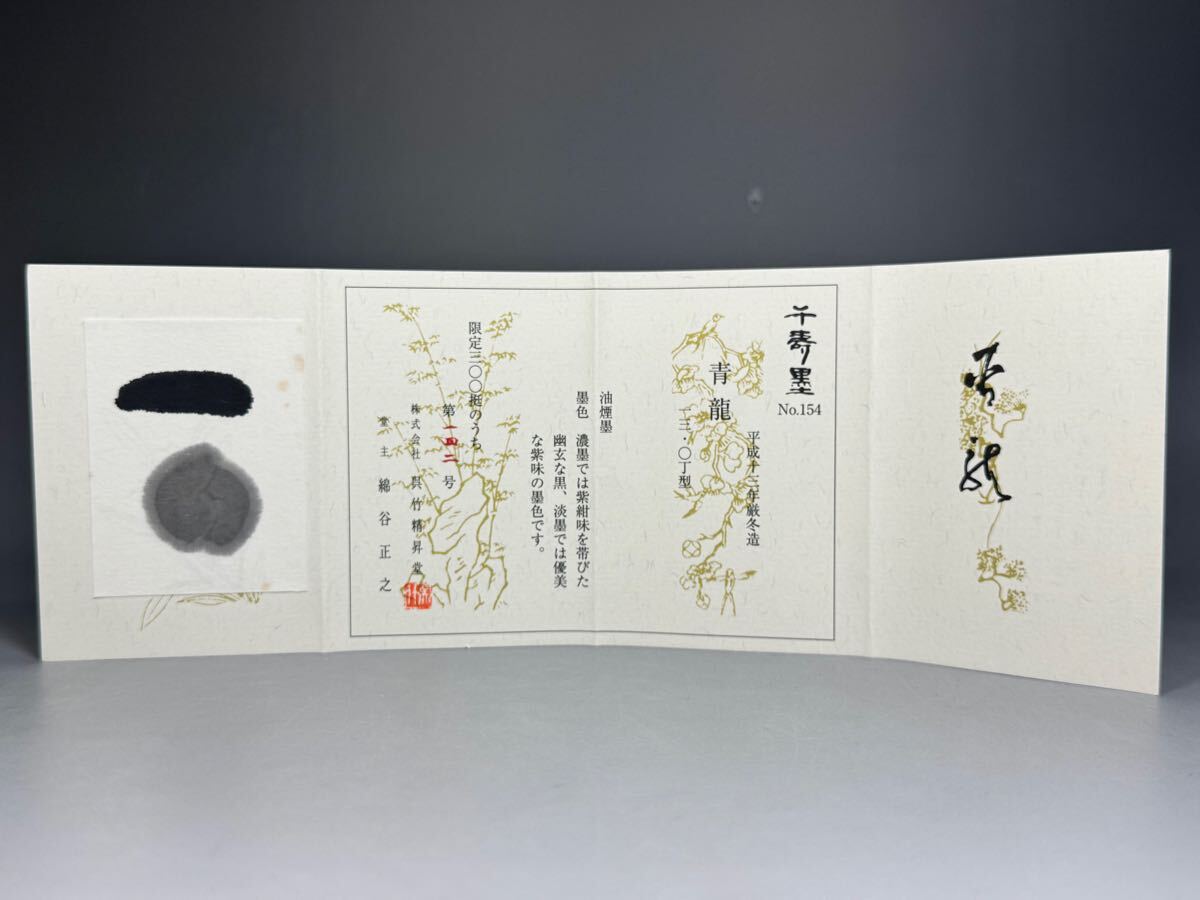 青龍
千寿墨
No.154
平成十三年厳冬造
青龍
一三・〇丁型
油煙墨
墨色 濃墨では紫紺味を帯びた
幽玄な黒、淡墨では優美
な紫味の墨色です。
限定三〇〇挺のうち
第一四二号
株式会社 呉竹精昇堂
堂主 綿谷正之